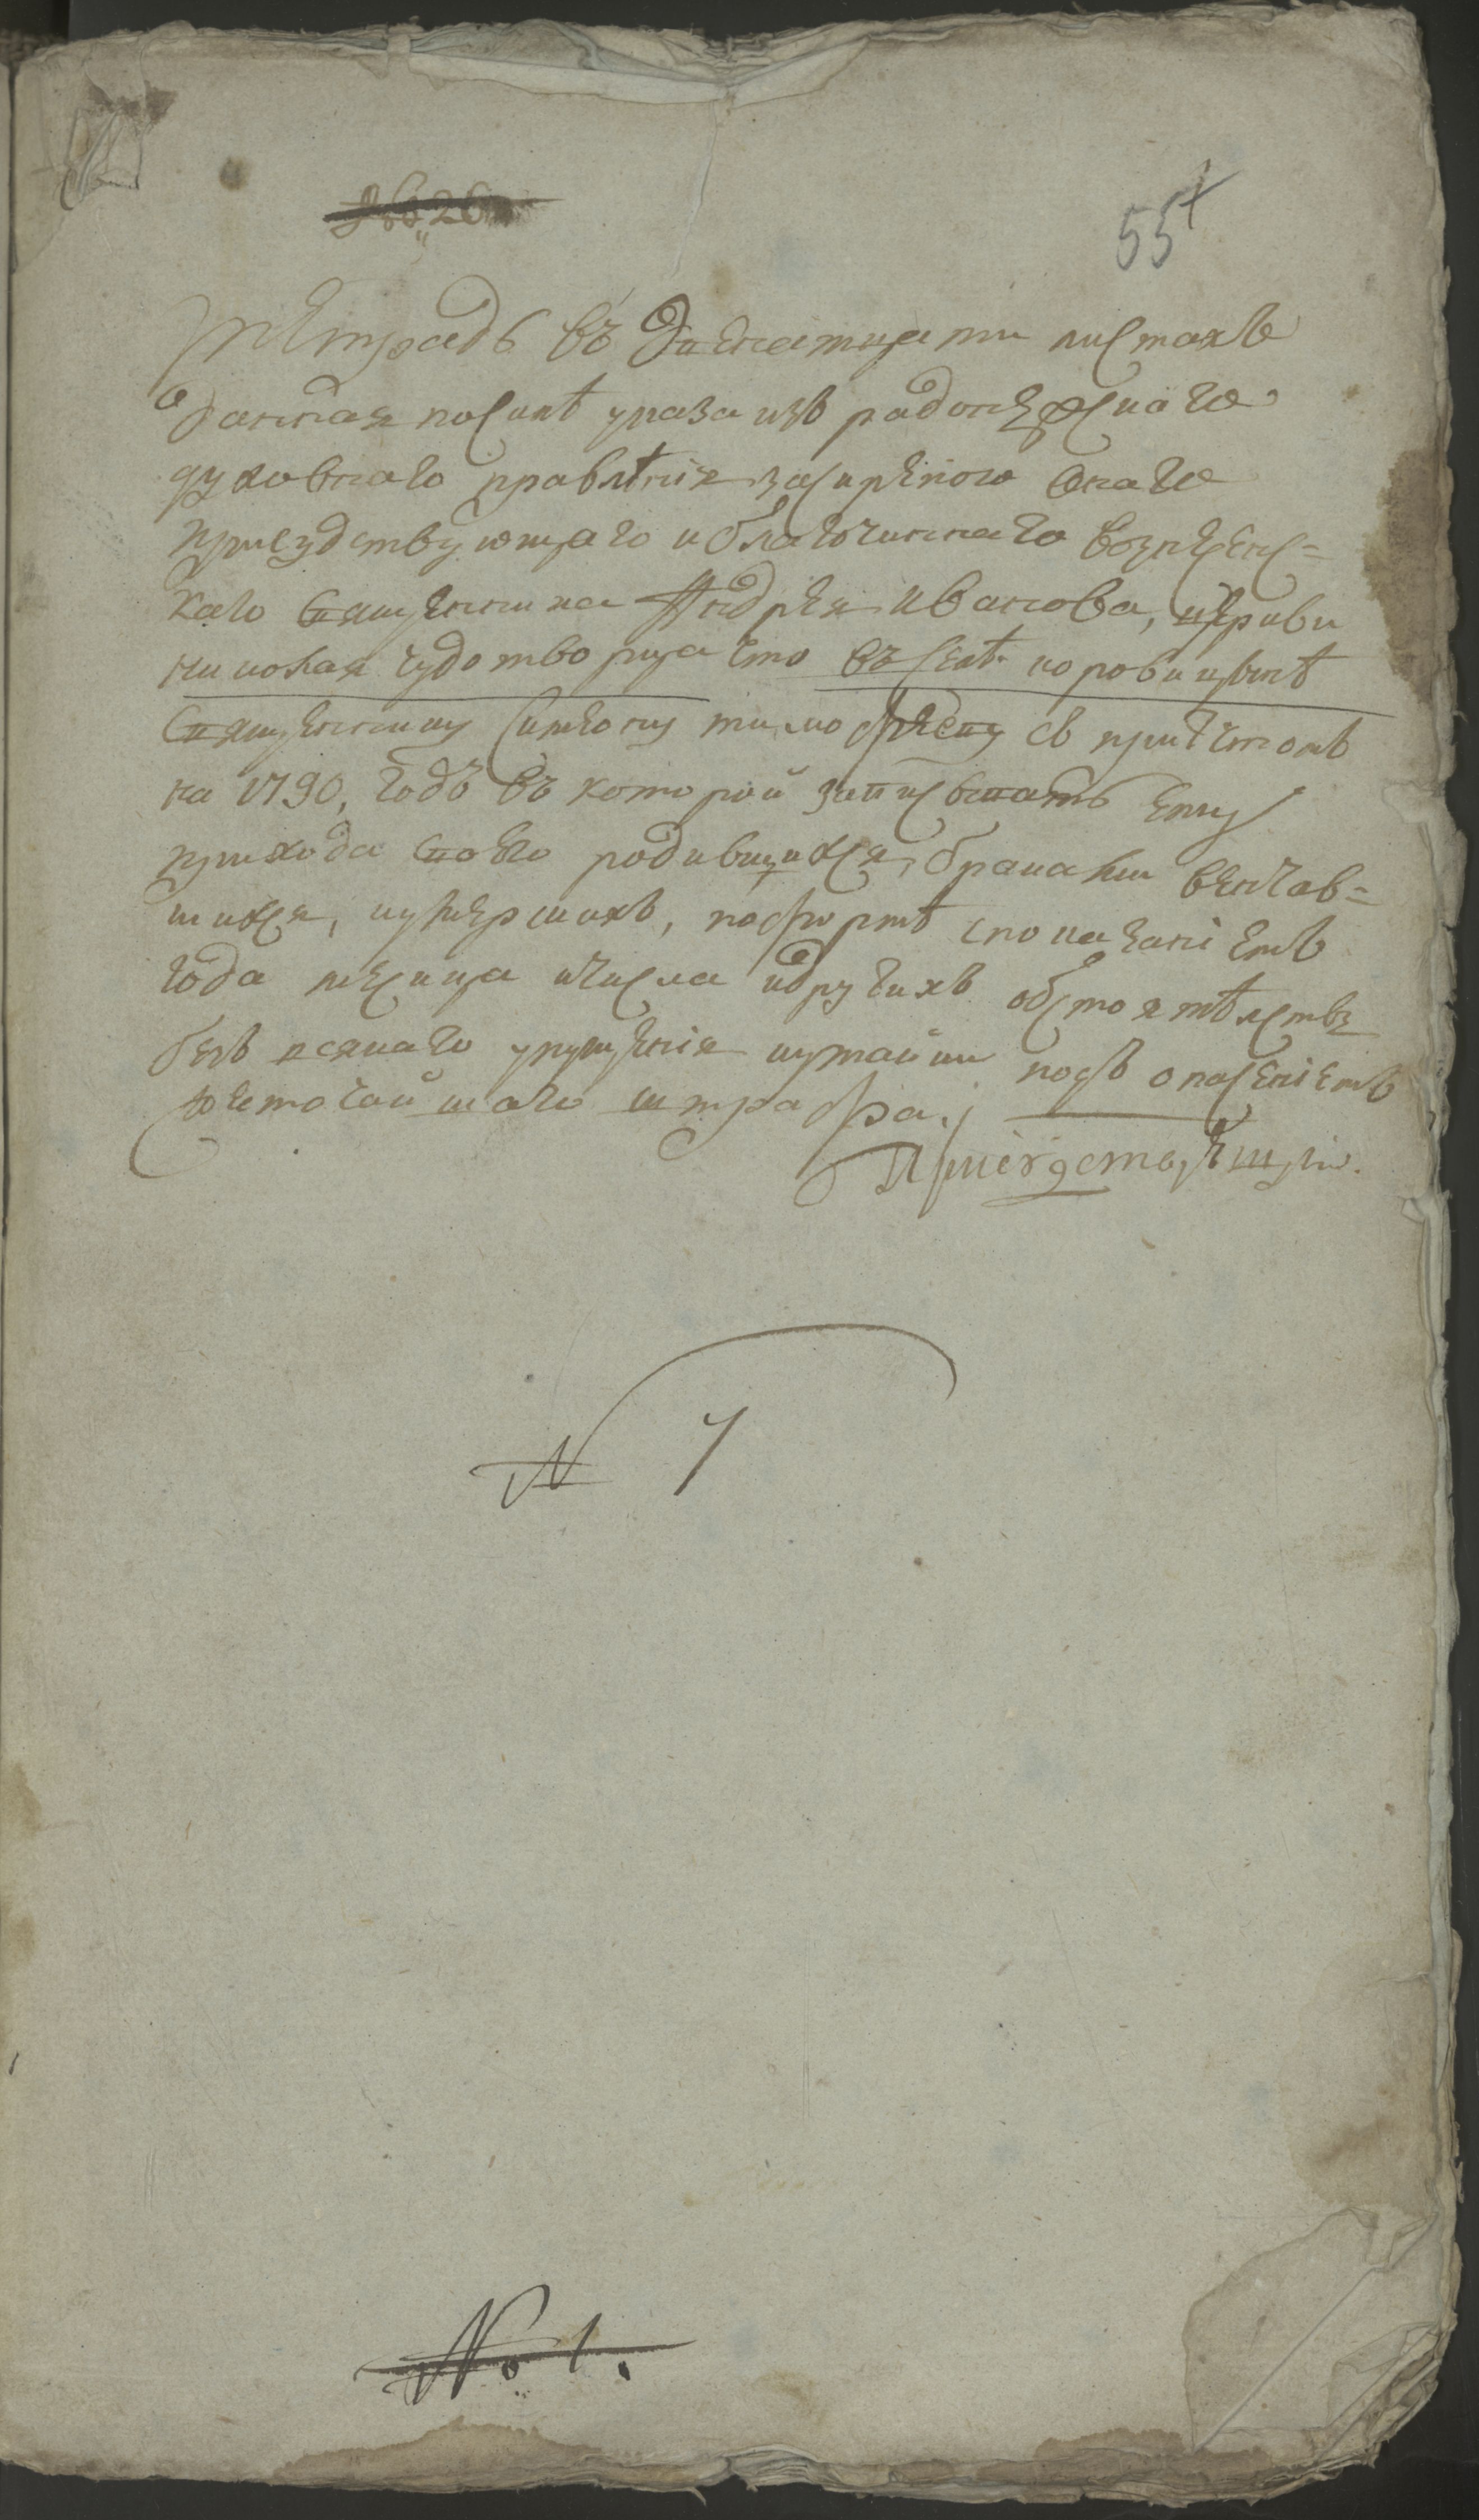 55
Тетрадь въ двенатцати листахъ
данная по силѣ указа изъ радонежскаго
духовнаго правлѣнія за скрепою онаго
присудствующаго и благочиннаго
каго священника Андрея Иванова, церкви
николая чудотворца что въ селѣ
священнику Симеону тимофееву съ причтомъ
на 1790, годъ въ которой записывать ему
прихода своего родившихся, браками венчав=
шихся, и умершихъ, по формѣ с показаніемъ
года месица и числа и другихъ обстоятѣлствъ
безъ всякаго упущенія и утайки подъ опасеніемъ
жесточайшаго штрафа.
N 7
No. 1.